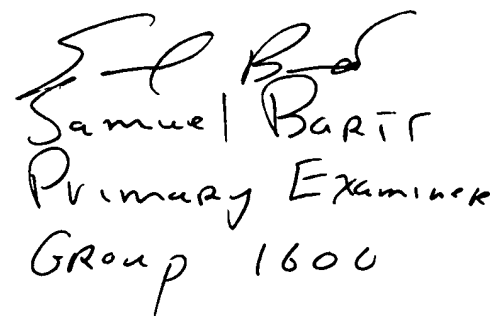 Samuel Barts
Primary Examiner
Group 1600